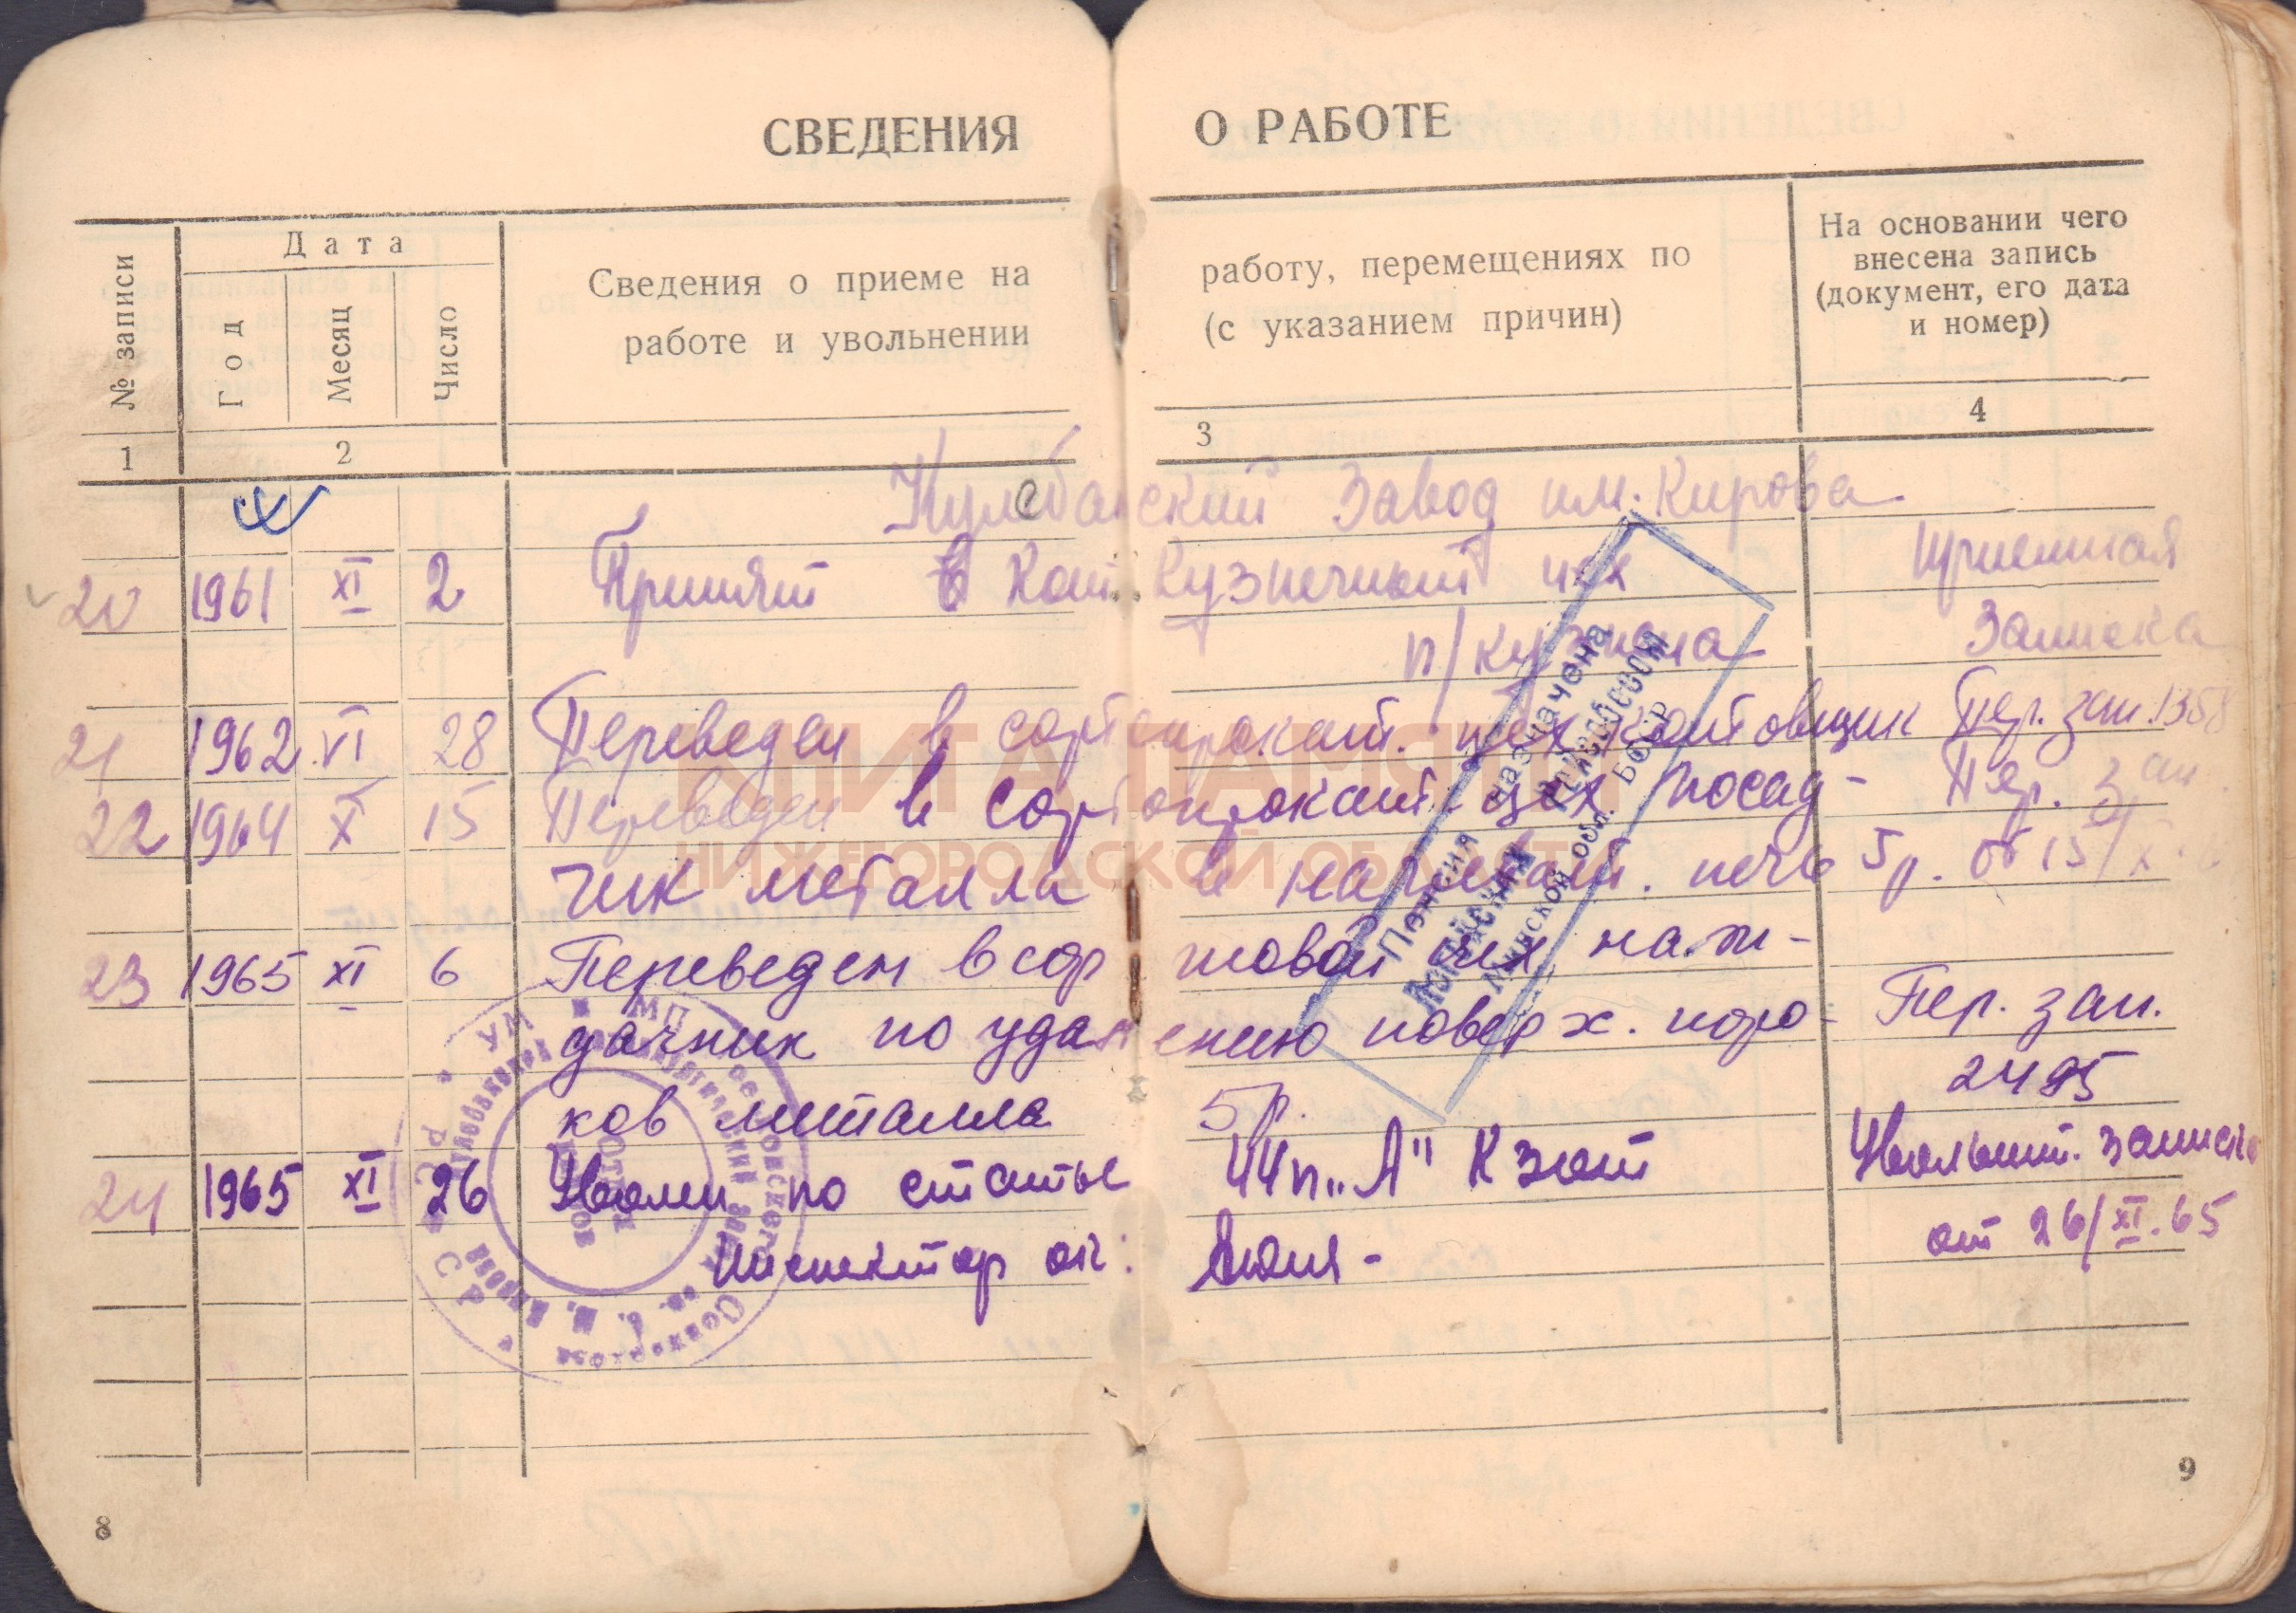 СВЕДЕНИЯ О РАБОТЕ
№ записи
Дата
Год
Месяц
Число
Сведения о приеме на работу, перемещениях по
работе и увольнении (с указанием причин)
На основании чего
внесена запись
(документ, его дата
и номер)
1 2 3 4
Кулебакский Завод им. Кирова
20 1961 XI 2 Принят в Кот. Кузнечный цех Приемная
п/кузнеца Записка
21 1962 VI 28 Переведен в сортопрокат. цех кантовщик Пер. зап. 1358
22 1964 X 15 Переведен в сортопрокат. цех посад- Пер. зап.
чик металла в нагреват. печь 5р. от 15/X
23 1965 XI 6 Переведен в сортовой цех наж-
дачник по удалению поверх. поро- Пер. зап.
ков металла 5р. 2495
24 1965 XI 26 Уволен по статье 44 п „А" КЗот Увольнит. записка
Инспектор ок: от 26/XI.65
Пенсия назначена
обл. БССР
КНИГА ПАМЯТИ
НИЖЕГОРОДСКОЙ ОБЛАСТИ
8
9